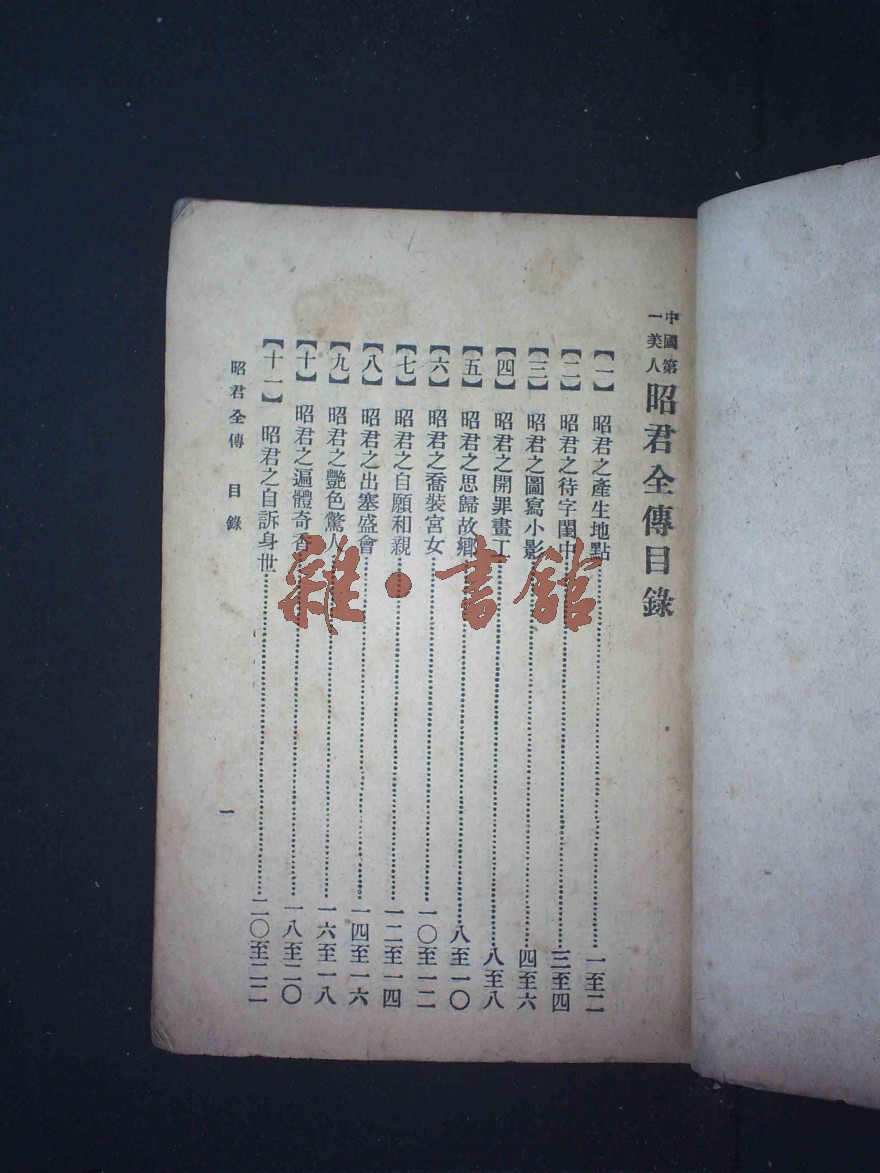 中國第
一美人
昭君全傳目錄
【一】 昭君之產生地點……一至二
【二】 昭君之待字閨中……三至四
【三】 昭君之圖寫小影……四至六
【四】 昭君之開罪畫工……八至八
【五】 昭君之思歸故鄉……八至一〇
【六】 昭君之喬裝宮女……一〇至一二
【七】 昭君之自願和親……一二至一四
【八】 昭君之出塞盛會……一四至一六
【九】 昭君之艷色驚人……一六至一八
【十】 昭君之遍體奇香……一八至二〇
【十一】 昭君之自訴身世……二〇至二二
昭君全傳 目錄
一
雜·書館